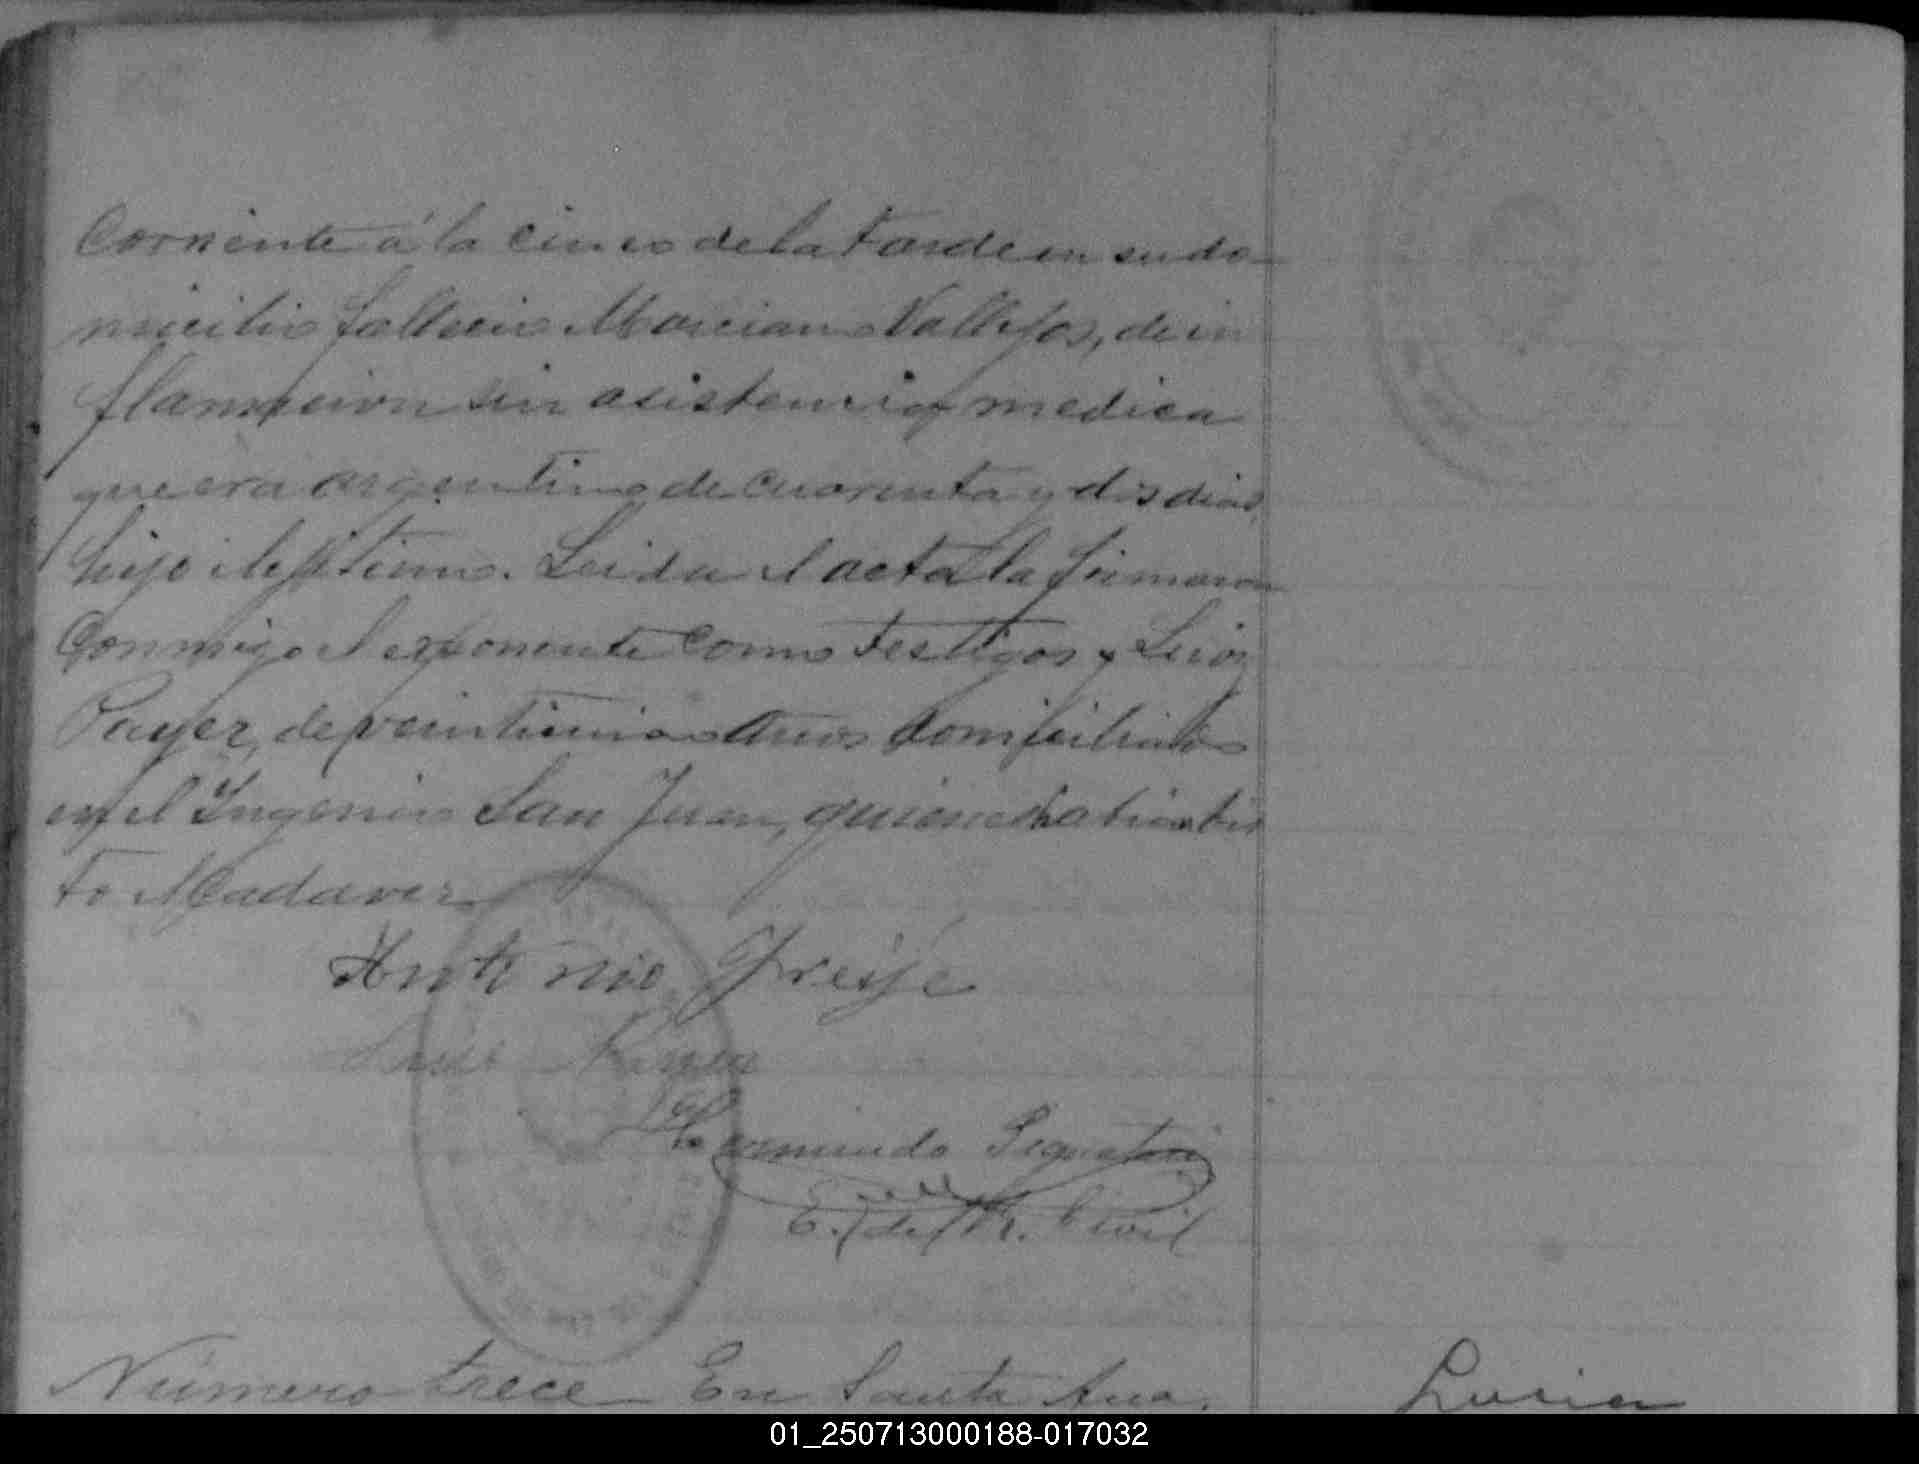 Corriente á la cinco de la tarde en su do
micilio fallecio Marciano Vallejos, de in
flamacion sin asistencia medica
que era argentino de cuarenta y dos dias,
hijo ilejitimo. Leida el acta la firmaron
Conmigo el exponente como testigos y Luis
Payer, de veinticinco anos domiciliados
en el Ingenio San Juan, quienes habian vis
to el Cadaver
Antonio Freije
Luis
E. del R. Civil
Número trece En Santa Ana,
Lucia
01_250713000188-017032